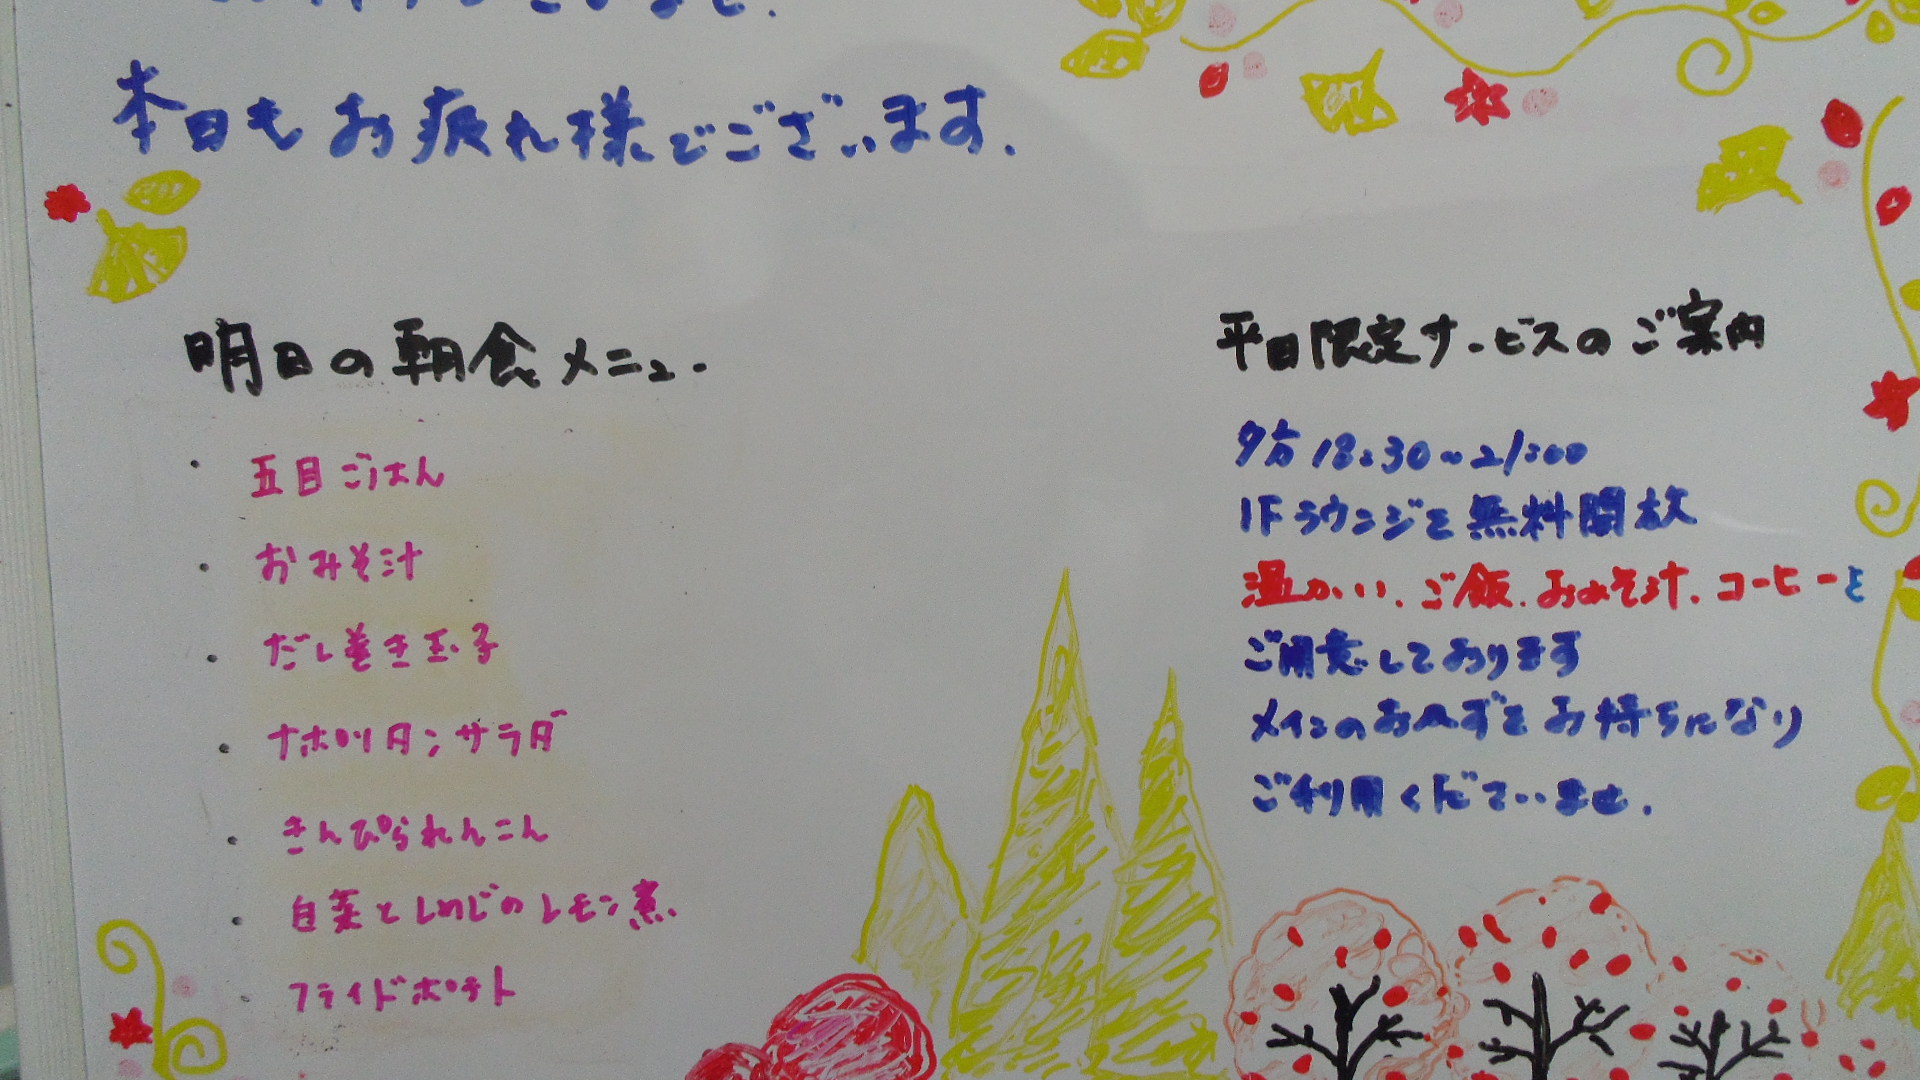 本日もお疲れ様でございます.
明日の朝食メニュー
・五目ごはん
・おみそ汁
・だし巻き玉子
・ナポリタンサラダ
・きんぴられんこん
・白菜としめじのレモン煮.
・フライドポテト
平日限定サービスのご案内
夕方18:30〜21:00
1Fラウンジを無料開放
温かい、ご飯、おみそ汁、コーヒーを
ご用意しております
メインのおかずをお持ちになり
ご利用くださいませ.